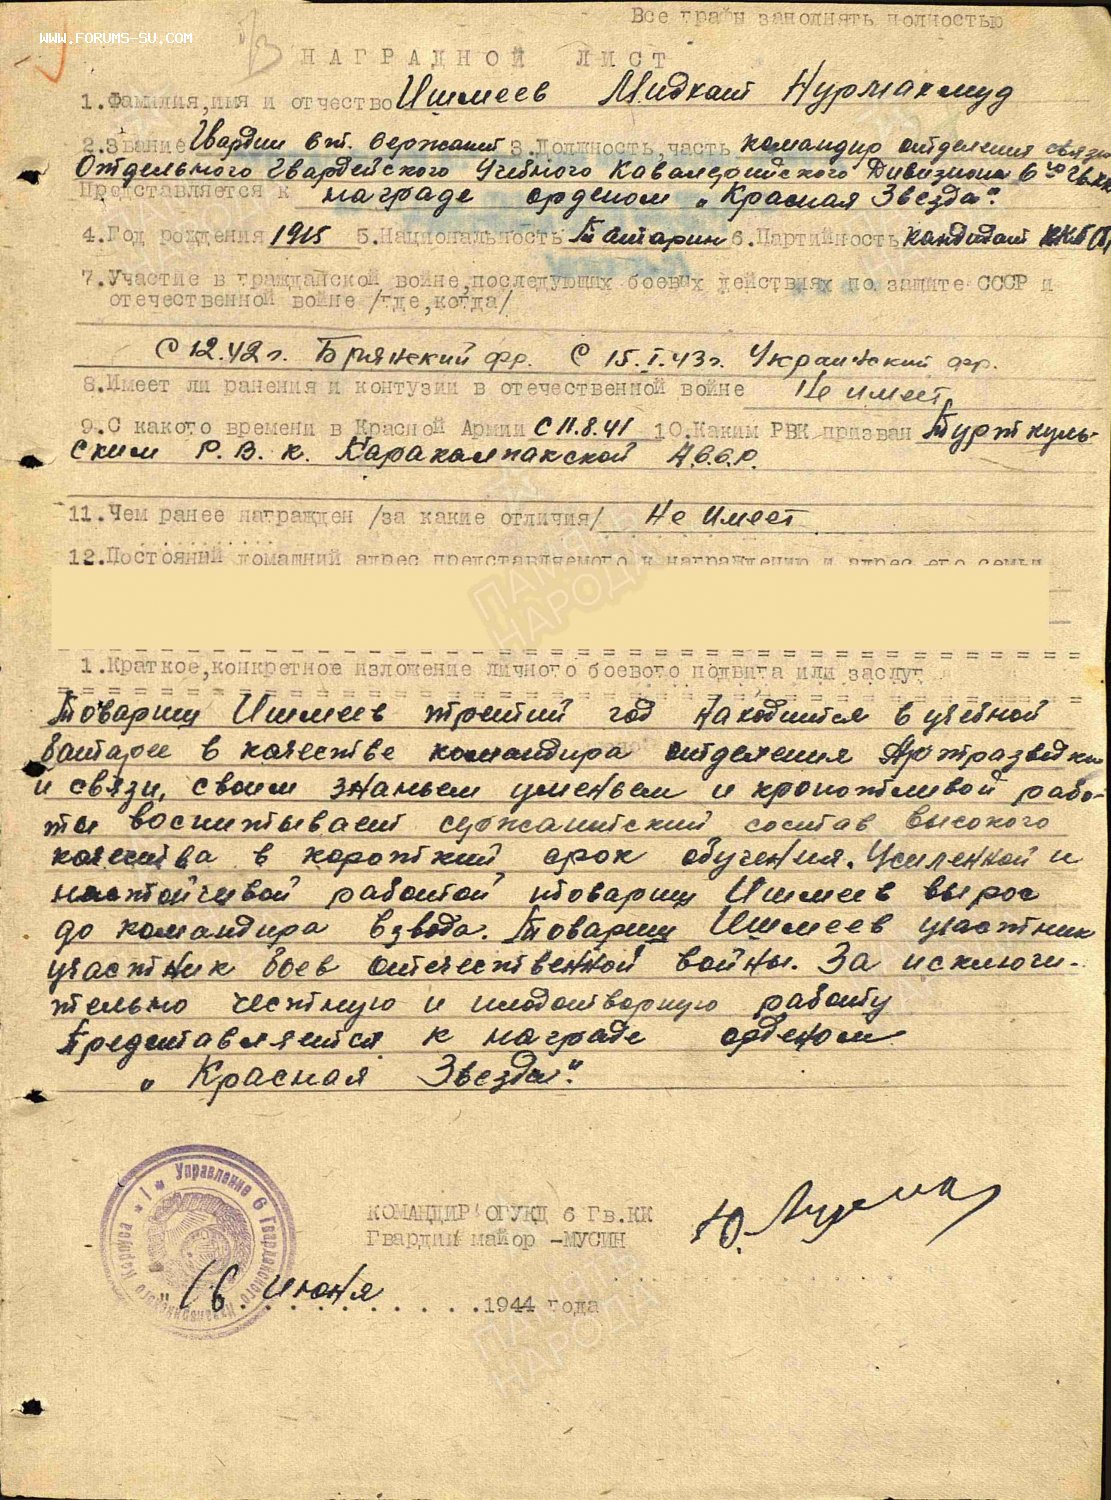 WWW.FORUMS-SU.COM
Все графы заполнять полностью
НАГРАДНОЙ ЛИСТ
1.Фамилия,имя и отчество Ишмеев Мидхат Нурмахмуд
2.Звание Гвардии вт. сержант 3.Должность,часть командир отделения связи
Отдельного Гвардейского Учебного Кавалерийского Дивизиона 6го Гв.КК
Представляется к награде орденом „Красная Звезда".
4.Год рождения 1915 5.Национальность Татарин 6.Партийность кандидат ВКП(б)
7.Участие в гражданской войне,последующих боевых действиях по защите СССР и
отечественной войне /где,когда/
С 12.42 г. Брянский фр. С 15.I.43 г. Украинский фр.
8.Имеет ли ранения и контузии в отечественной войне Не имеет
9.С какого времени в Красной Армии с 11.8.41 10.Каким РВК призван Турткуль-
ским Р.В.К. Каракалпакской А.С.С.Р.
11.Чем ранее награжден /за какие отличия/ Не имеет
12.Постоянный домашний адрес представляемого к награждению и адрес его семьи
1.Краткое,конкретное изложение личного боевого подвига или заслуг
Товарищ Ишмеев третий год находится в учебной
батарее в качестве командира отделения Артразведки
и связи, своим знаньем уменьем и кропотливой рабо-
ты воспитывает сержантский состав высокого
качества в короткий срок обучения. Усиленной и
настойчивой работой товарищ Ишмеев вырос
до командира взвода. Товарищ Ишмеев участник
участник боев отечественной войны. За исключи-
тельно честную и плодотворную работу
Представляется к награде орденом
„Красная Звезда".
КОМАНДИР ОГУКД 6 Гв.КК
Гвардии майор -МУСИН
"16. июня 1944 года
* 1 * Управление 6 Гвардейского Кавалерийского Корпуса
ПАМЯТЬ НАРОДА